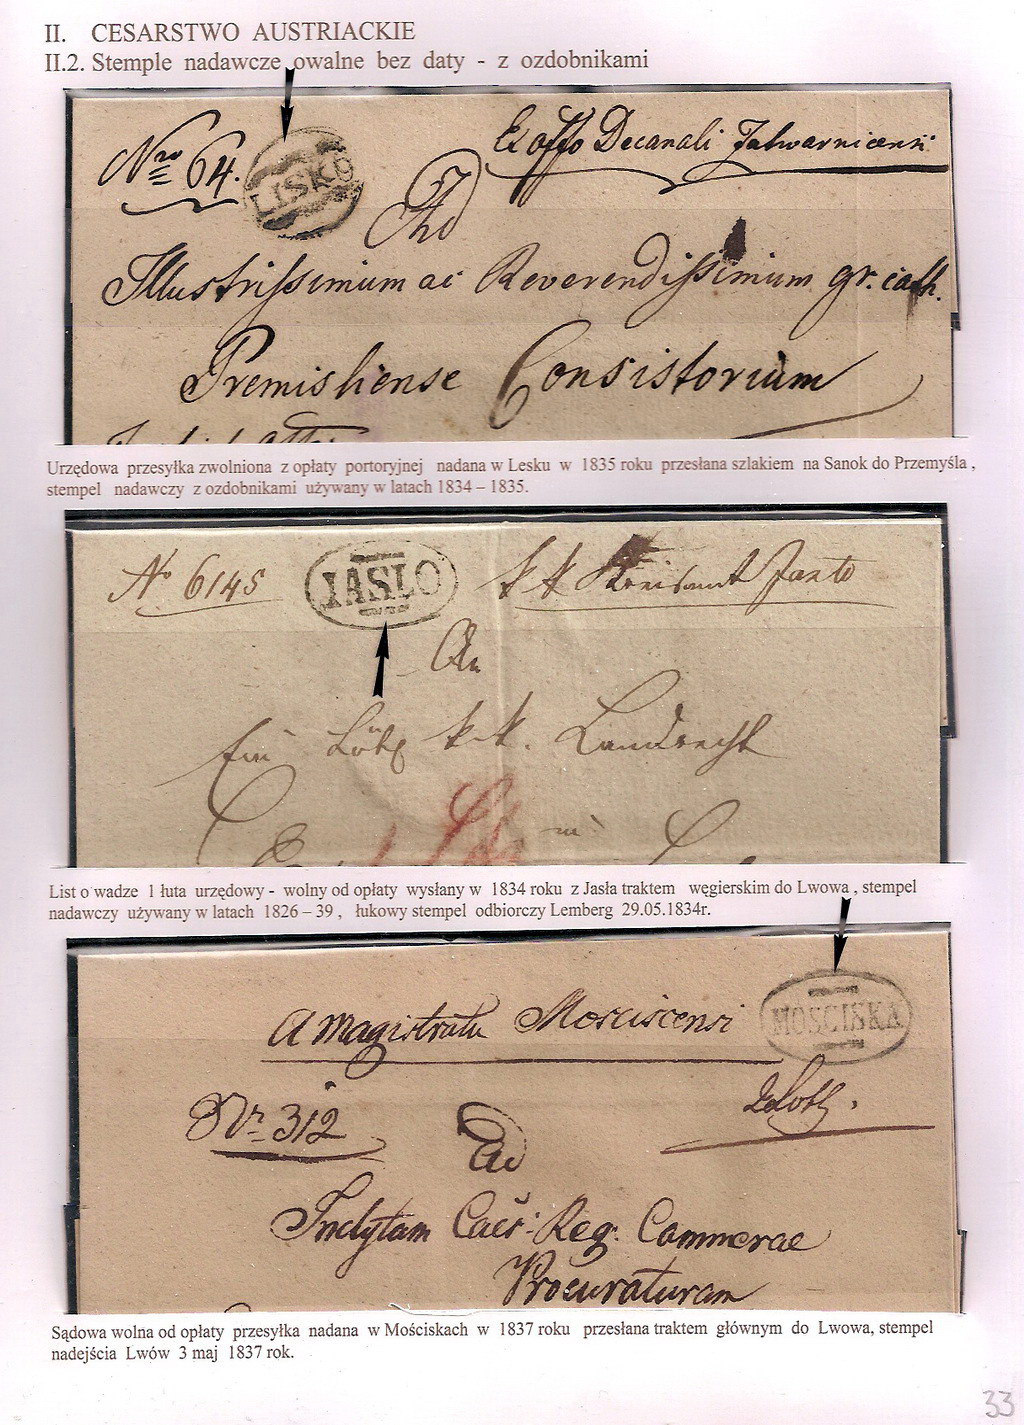 II. CESARSTWO AUSTRIACKIE
II.2. Stemple nadawcze owalne bez daty - z ozdobnikami
Nro 64.
LISKO
Ex offo Decanali Jalivarnicensi
Ad
Illustrissimum ac Reverendissimum gr. cath.
Premisliense Consistorium
Urzędowa przesyłka zwolniona z opłaty portoryjnej nadana w Lesku w 1835 roku przesłana szlakiem na Sanok do Przemyśla ,
stempel nadawczy z ozdobnikami używany w latach 1834 – 1835.
No 6145
IASLO
k k Kreisamt Jaslo
An
Ein Löbl. k.k. Landrecht
List o wadze 1 łuta urzędowy - wolny od opłaty wysłany w 1834 roku z Jasła traktem węgierskim do Lwowa , stempel
nadawczy używany w latach 1826 – 39 , łukowy stempel odbiorczy Lemberg 29.05.1834r.
A Magistratu Mosciscensi
MOSCISKA
Nr. 312
Ad
Inclytam Caes: Reg: Camerae
Procuraturam
Sądowa wolna od opłaty przesyłka nadana w Mościskach w 1837 roku przesłana traktem głównym do Lwowa, stempel
nadejścia Lwów 3 maj 1837 rok.
33